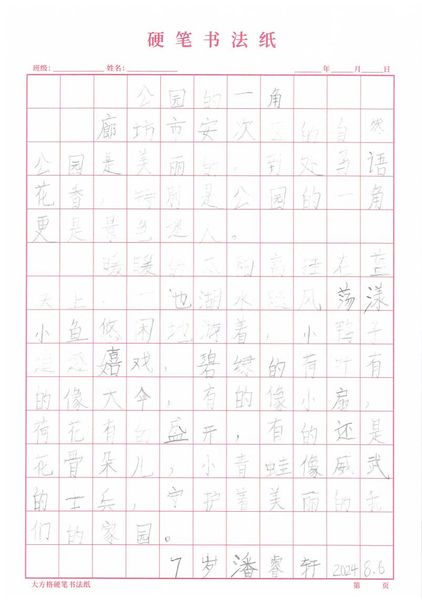 硬笔书法纸
班级： 姓名： 年 月 日
公园的一角
廊坊市安次区的自然
公园是美丽的，到处鸟语
花香，特别是公园的一角
更是景色迷人。
暖暖的高挂在蓝
天上，一池湖水随风荡漾
小鱼悠闲游着，小鸭子
嬉戏，碧绿的荷叶有
的像大伞，有的像小扇，
荷花有的盛开，有的还是
花骨朵儿，小青蛙像威武
的士兵，守护着美丽的它
们的家园。
7岁潘睿轩 2024 8.6
大方格硬笔书法纸 第 页